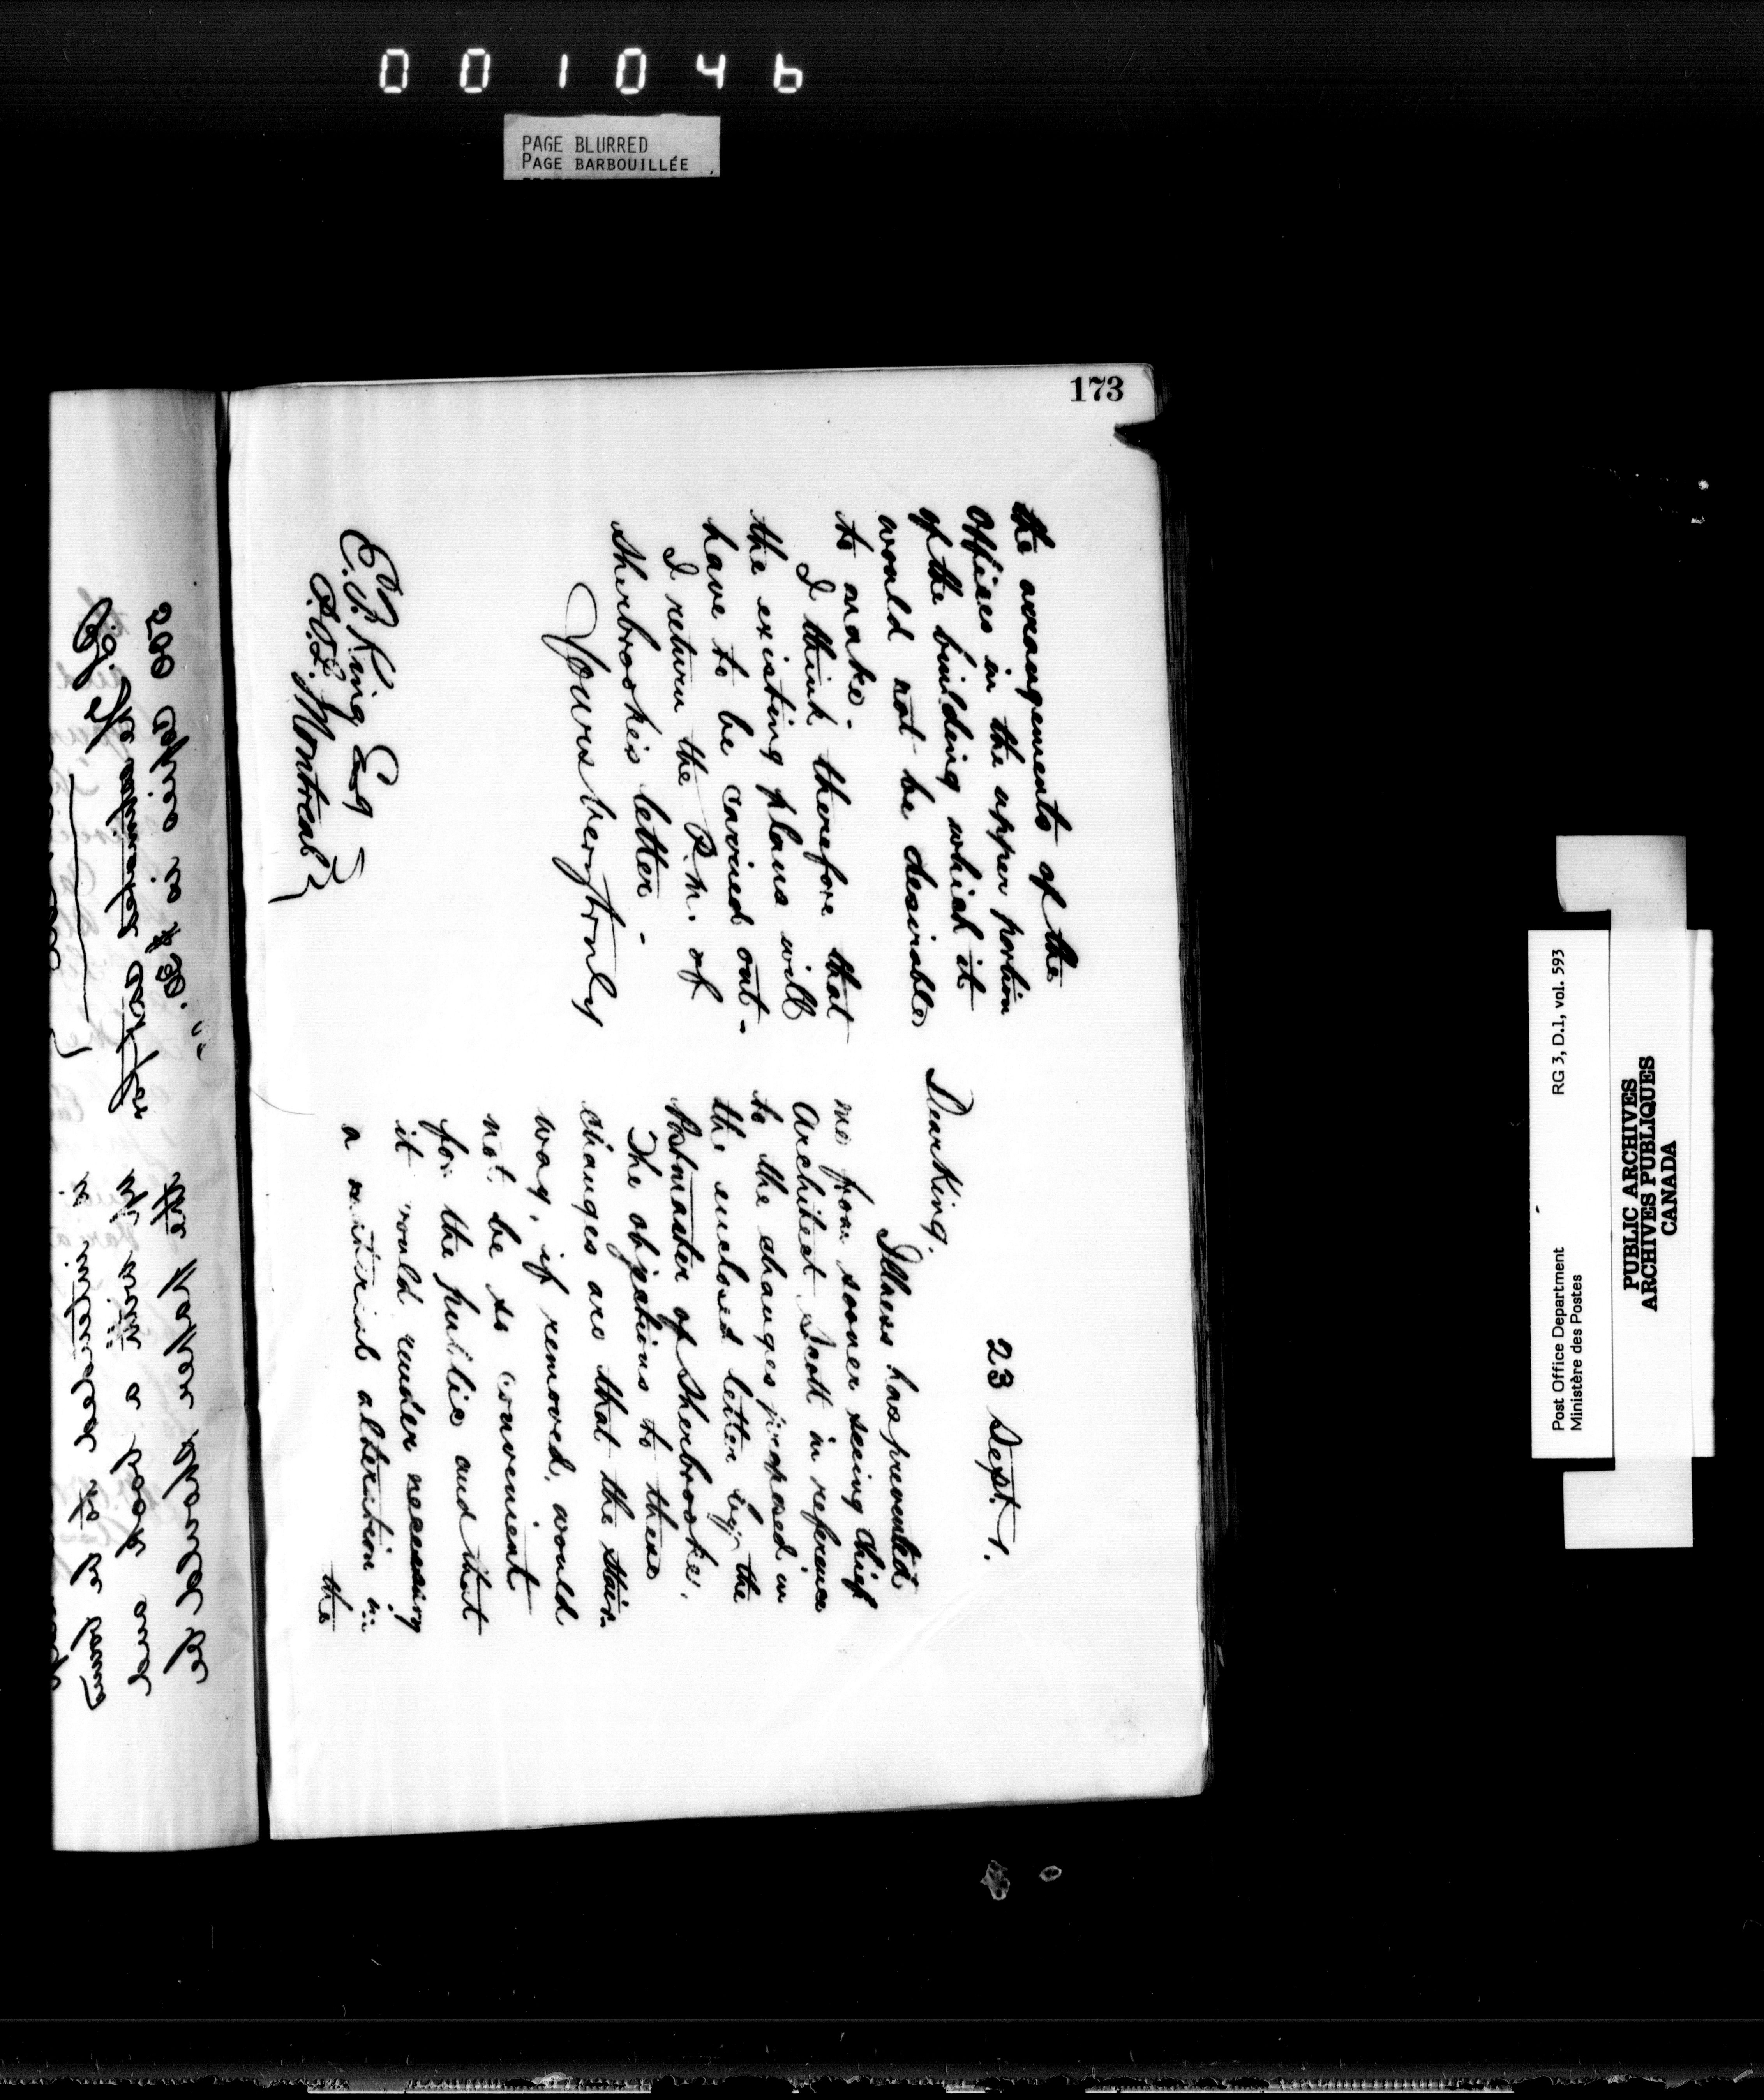 001046
PAGE BLURRED
PAGE BARBOUILLÉE
173
23 Sept.
Dear King,
Illness has prevented
me from sooner seeing Chief
Architect Scott in reference
to the changes proposed in
the enclosed letter by the
Postmaster of Sherbrooke.
The objections to these
changes are that the stair-
way, if removed, would
not be so convenient
for the public and that
it would render necessary
a material alteration in
the
the arrangements of the
offices in the upper portion
of the building which it
would not be desirable
to make.
I think therefore that
the existing plans will
have to be carried out-
I return the P.M. of
Sherbrooke's letter-
Yours very truly
E.F. King Esq
P.O.I. Montreal
500 copies is
and
the
RG 3, D.1, vol. 593
Post Office Department
Ministère des Postes
PUBLIC ARCHIVES
ARCHIVES PUBLIQUES
CANADA